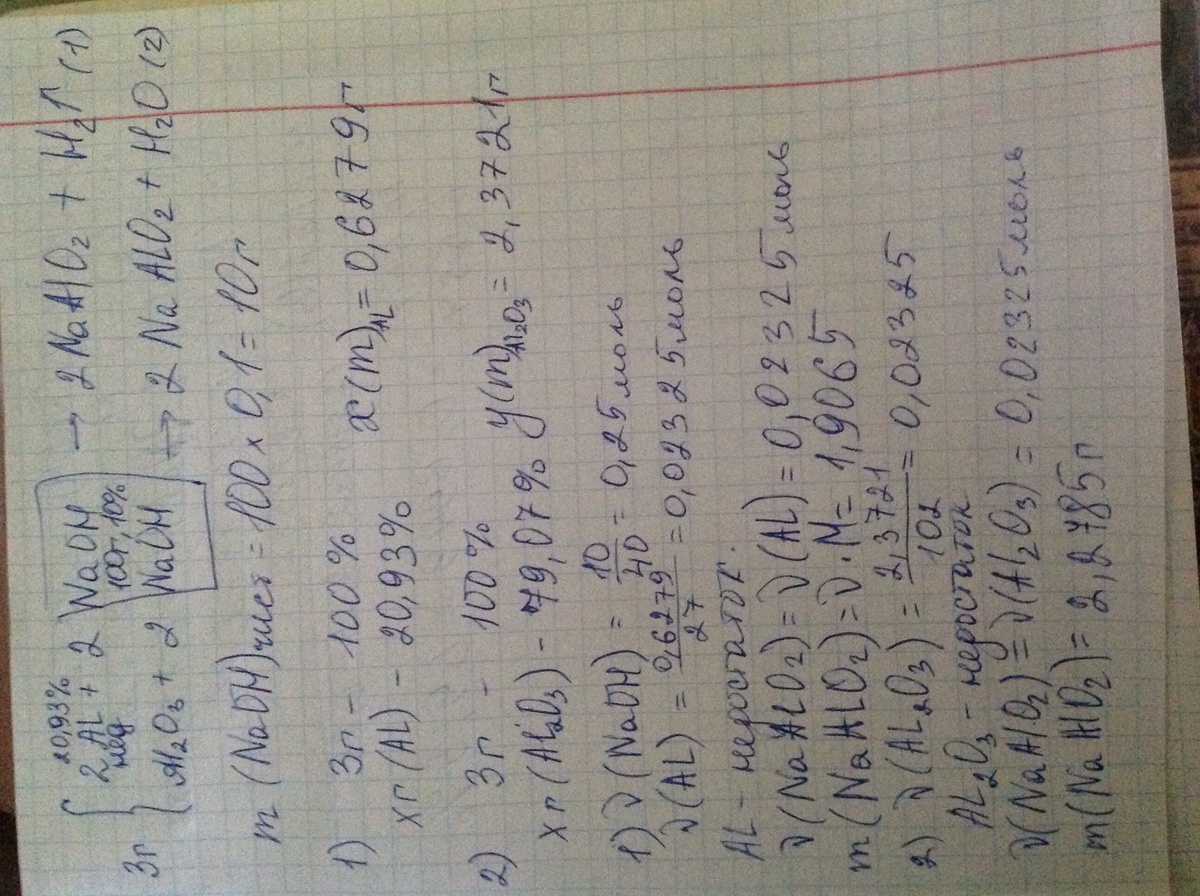 20,93%
3г { 2AL + 2 NaOH → 2NaAlO₂ + H₂↑ (1)
нед 100г, 10%
Al₂O₃ + 2 NaOH → 2 NaALO₂ + H₂O (2)
m (NaOH)чист = 100 x 0,1 = 10г
1) 3г - 100% x(m)AL = 0,6279г
xг(AL) - 20,93%
2) 3г - 100%
xг(Al₂O₃) - 79,07% y(m)Al₂O₃ = 2,3721г
1) ν(NaOH) = 10/40 = 0,25 моль
ν(AL) = 0,6279/27 = 0,02325 моль
AL - недостаток.
ν(NaAlO₂) = ν(AL) = 0,02325 моль
m(NaALO₂) = ν·M = 1,9065
2) ν(AL₂O₃) = 2,3721/102 = 0,02325
AL₂O₃ - недостаток
ν(NaAlO₂) = ν(Al₂O₃) = 0,02325 моль
m(NaAlO₂) = 2,2785г